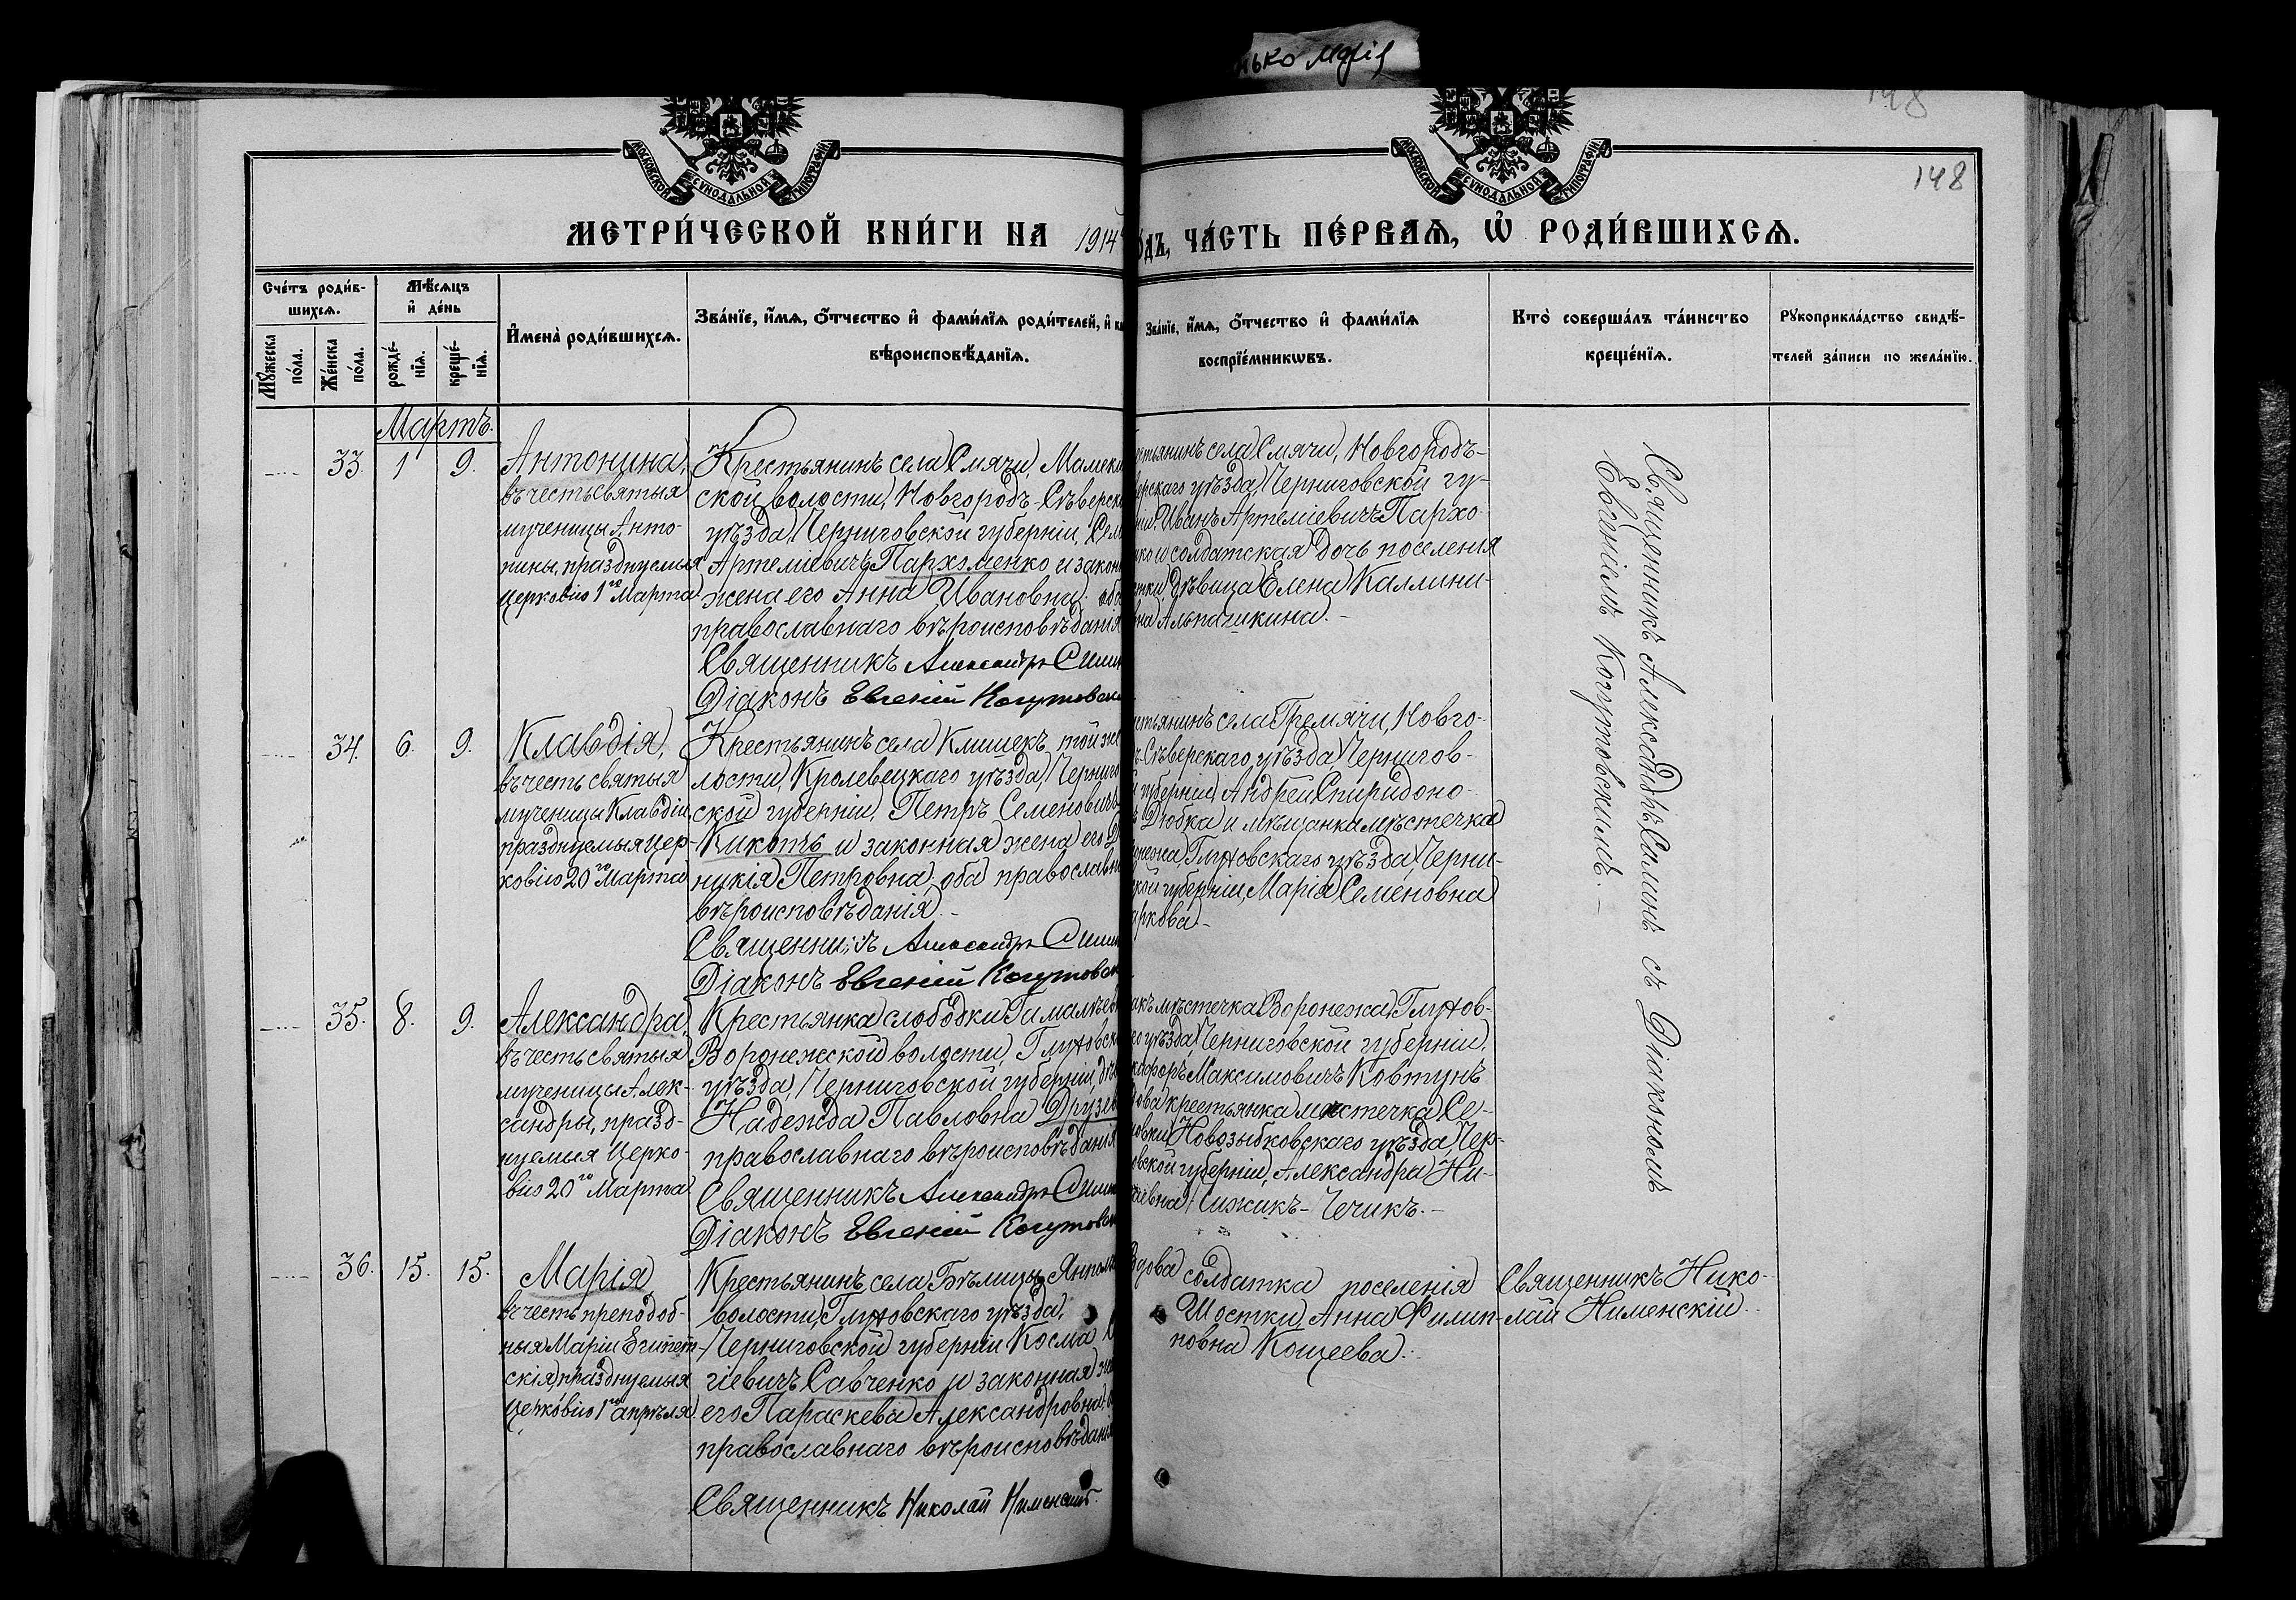 148
148
МОСКОВСКОЙ СУНОДАЛЬНОЙ ТИПОГРАФІИ
МОСКОВСКОЙ СУНОДАЛЬНОЙ ТИПОГРАФІИ
МЕТРИ́ЧЕСКОЙ КНИ́ГИ НА 1914
ЧА́СТЬ ПЕ́РВАѦ, Ѡ҆ РОДИ́ВШИХСѦ.
Сче́тъ роди́в-
шихсѧ.
Мꙋ́жеска по́ла.
Же́нска по́ла.
Мѣ́сѧцъ
и҆ де́нь
рожде́-
нїѧ.
креще́-
нїѧ.
И҆мена̀ роди́вшихсѧ.
Зва́нїе, и҆́мѧ, ѻ҆́тчество и҆ фами́лїѧ роди́телей, и҆
вѣроисповѣ́данїѧ.
Зва́нїе, и҆́мѧ, ѻ҆́тчество и҆ фами́лїѧ
воспрїе́мникѡвъ.
Кто̀ соверша́лъ та́инство
креще́нїѧ.
Рꙋкоприкла́дство свидѣ́-
телей за́писи по жела́нїю.
Мартъ.
33. 1 9.
Антонина,
въ честь святыя
мученицы Анто-
нины, празднуемыя
церковію 1го Марта
Крестьянинъ села Смячи,
ской волости, Новгородъ-Сѣверск
уѣзда, Черниговской губерніи,
Артеміевичъ Пархоменко и закон
жена его Анна Ивановна, оба
православнаго вѣроисповѣданія
Священникъ Александръ
Діаконъ Евгеній Когутовск
села Смячи, Новгородъ-
уѣзда, Черниговской гу-
Иванъ Артеміевичъ Пархо-
и солдатская дочь поселенія
дѣвица Елена Каллини-
Альпашкина.-
Священникъ Александръ Силинъ съ Діакономъ
Евгеніемъ Когутовскимъ.-
34. 6. 9.
Клавдія,
въ честь святыя
мученицы Клавдіи,
празднуемыя цер-
ковію 20го Марта
Крестьянинъ села Клишекъ, той же
лости, Кролевецкаго уѣзда, Черниго
ской губерніи, Петръ Семеновичъ
Кикоть и законная жена его
нукія Петровна, оба православн
вѣроисповѣданія.-
Священникъ Александръ
Діаконъ Евгеній Когутовск
села Гремячи, Новго-
Сѣверскаго уѣзда, Чернигов-
губерніи, Андрей Спиридоно-
Дюбка и мѣщанка мѣстечка
Глуховскаго уѣзда, Черни-
губерніи, Марія Семеновна
35. 8. 9.
Александра,
въ честь святыя
мученицы Алек-
сандры, празд-
нуемыя Церко-
вію 20го Марта
Крестьянка слободки
Воронежской волости, Глуховск
уѣзда, Черниговской губерніи,
Надежда Павловна
православнаго вѣроисповѣданія
Священникъ Александръ
Діаконъ Евгеній Когутовск
мѣстечка Воронежа, Глухов-
уѣзда, Черниговской губерніи,
Максимовичъ Ковтунъ
крестьянка мѣстечка Се-
Новозыбковскаго уѣзда, Чер-
губерніи, Александра Ни-
Чижикъ-Чечикъ.-
36. 15. 15.
Марія,
въ честь преподоб-
ныя Маріи Египет-
скія, празднуемыя
Церковію 1го апрѣля
Крестьянинъ села Бѣлицы,
волости, Глуховскаго уѣзда,
Черниговской губерніи Косма
гіевичъ Савченко и законная
его Параскева Александровна,
православнаго вѣроисповѣданія
Священникъ Николай Нименскій.
Вдова солдатка поселенія
Шостки, Анна Филип-
повна Кощеева.-
Священникъ Нико-
лай Нименскій.-